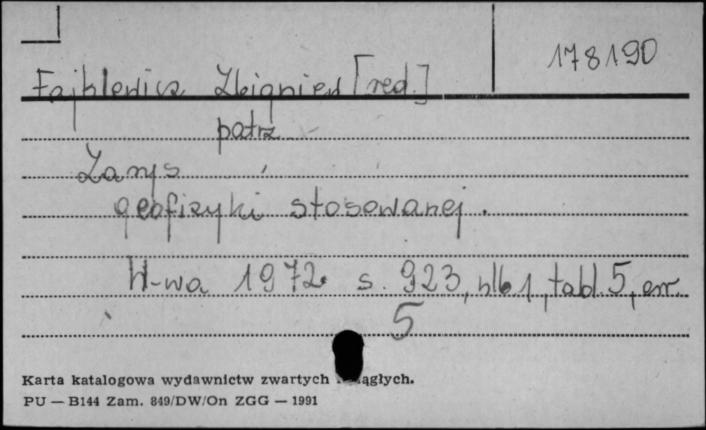 178190
Fajklewicz Zbigniew [red.]
patrz
Zarys
geofizyki stosowanej.
W-wa 1972 s. 923, nlb 1, tabl. 5, err.
5
Karta katalogowa wydawnictw zwartych ągłych.
PU — B144 Zam. 849/DW/On ZGG — 1991